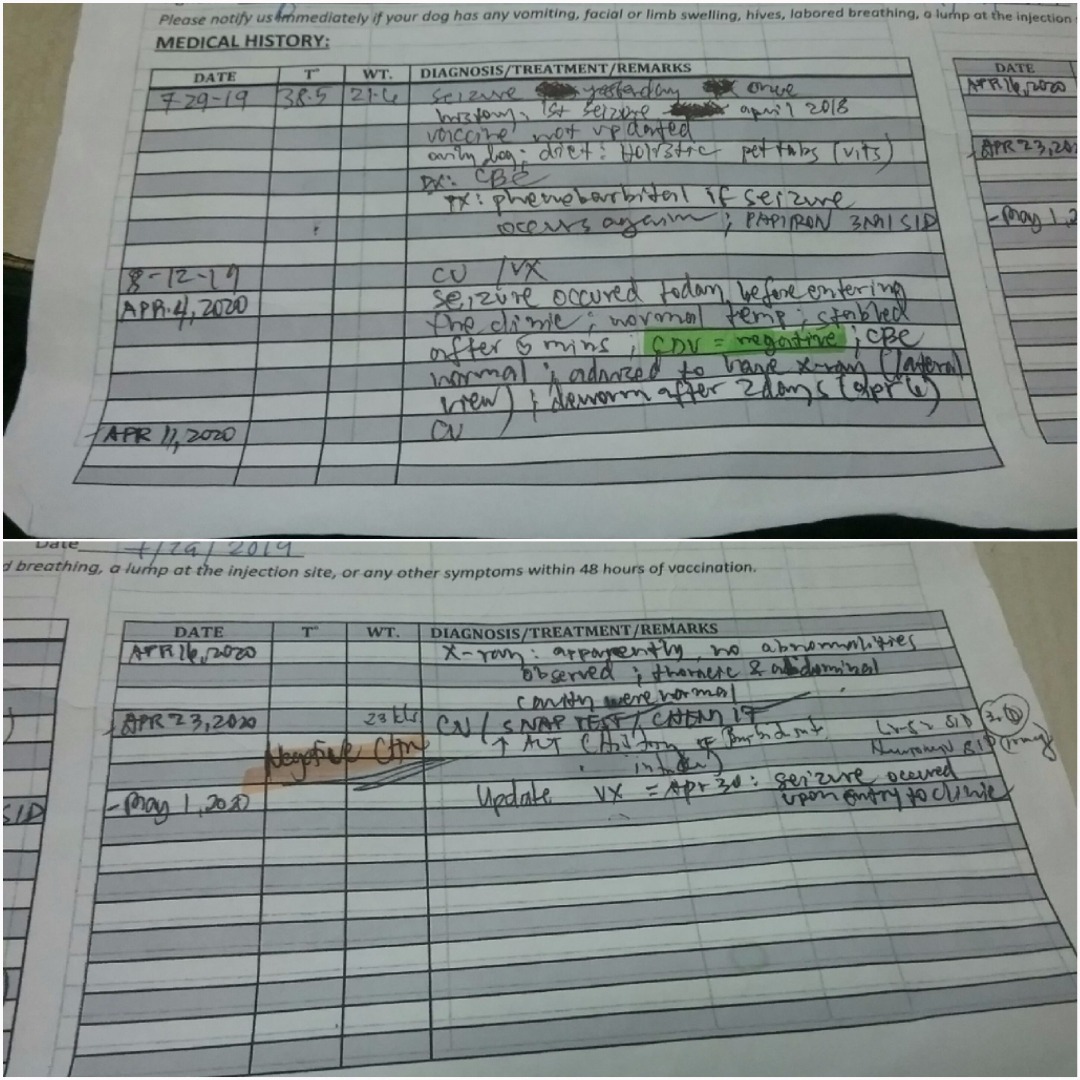 Please notify us immediately if your dog has any vomiting, facial or limb swelling, hives, labored breathing, a lump at the injection
MEDICAL HISTORY:
DATE T° WT. DIAGNOSIS/TREATMENT/REMARKS
7-29-19 38.5 21.6 seizure yesterday once
history: 1st seizure april 2018
vaccine not updated
only dog; diet: Holistic pet tabs (vits)
DX: CBC
TX: phenobarbital if seizure
occurs again; PAPIRON 3Ml SID
8-12-19 CU /VX
APR.4, 2020 seizure occured today, before entering
the clinic; normal temp; stabled
after 5 mins; CDV = negative; CBC
normal; advized to have x-ray (lateral
view); deworm after 2 days (apr 6)
APR 11, 2020 CU
DATE
APR 16, 2020
APR 23, 20
- May 1, 2
Date 7/29/2019
d breathing, a lump at the injection site, or any other symptoms within 48 hours of vaccination.
SID
DATE T° WT. DIAGNOSIS/TREATMENT/REMARKS
APR 16, 2020 X-ray: apparently no abnormalities
observed; thoracic & abdominal
cavity were normal
APR 23, 2020 23 kls CU / SNAP TEST / CHEM 17
↑ ALT (history of intake)
Negative CHW
SID
BID
- May 1, 2020 Update VX = Apr 30: seizure occured
upon entry to clinic